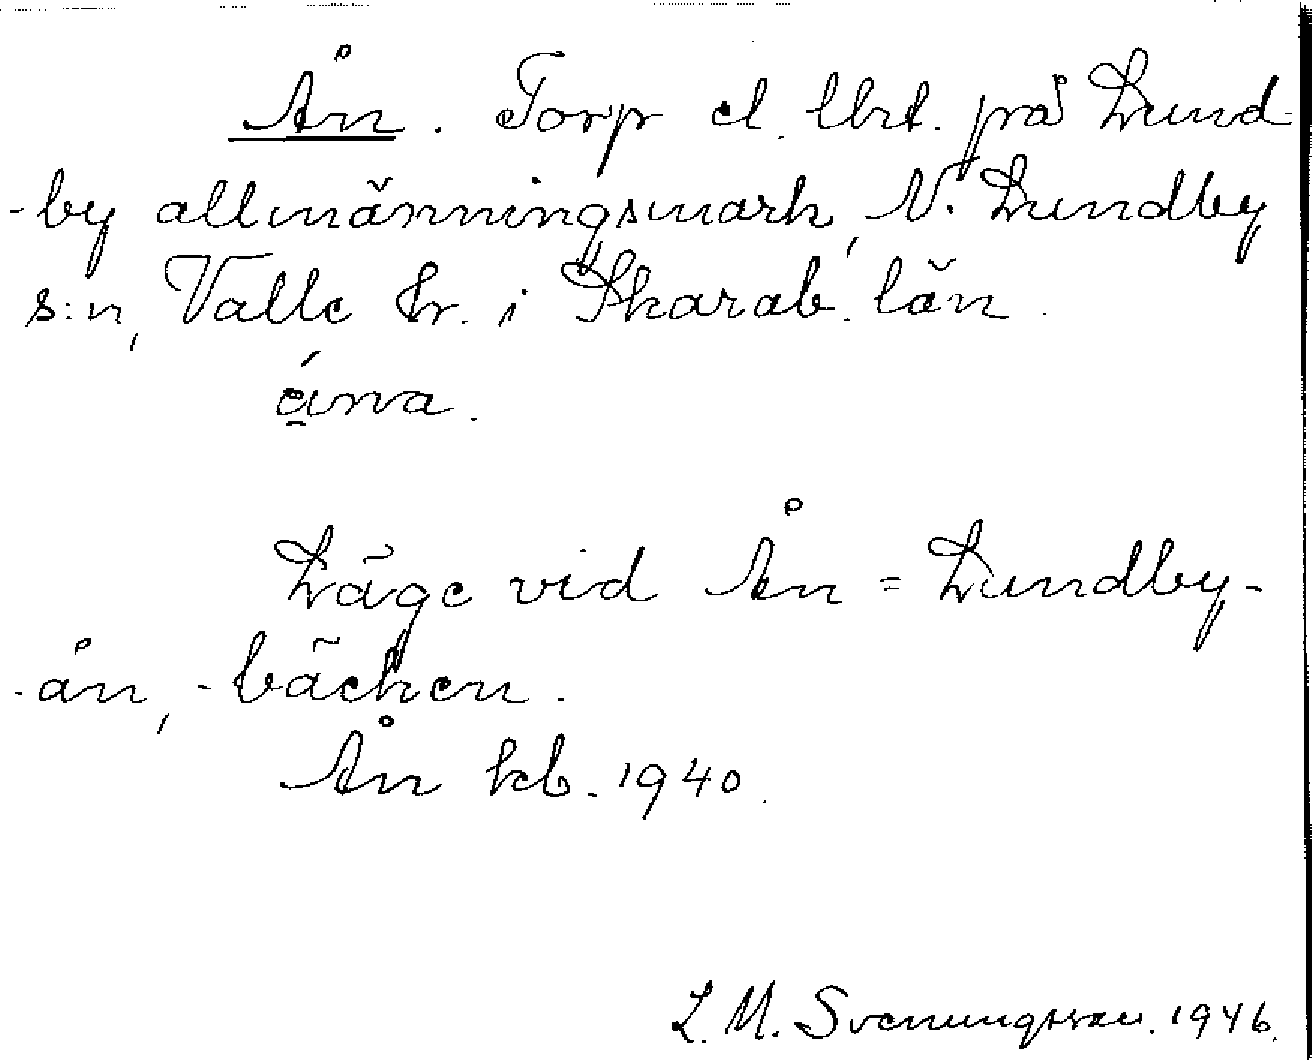 Ån. Torp el. lht. på Lund-
-by allmänningsmark, N. Lundby
s:n, Valle hr. i Skarab. län.
Läge vid Ån = Lundby-
-ån, -bäcken.
Ån kb. 1940.
L. M. Svenungsson. 1946.